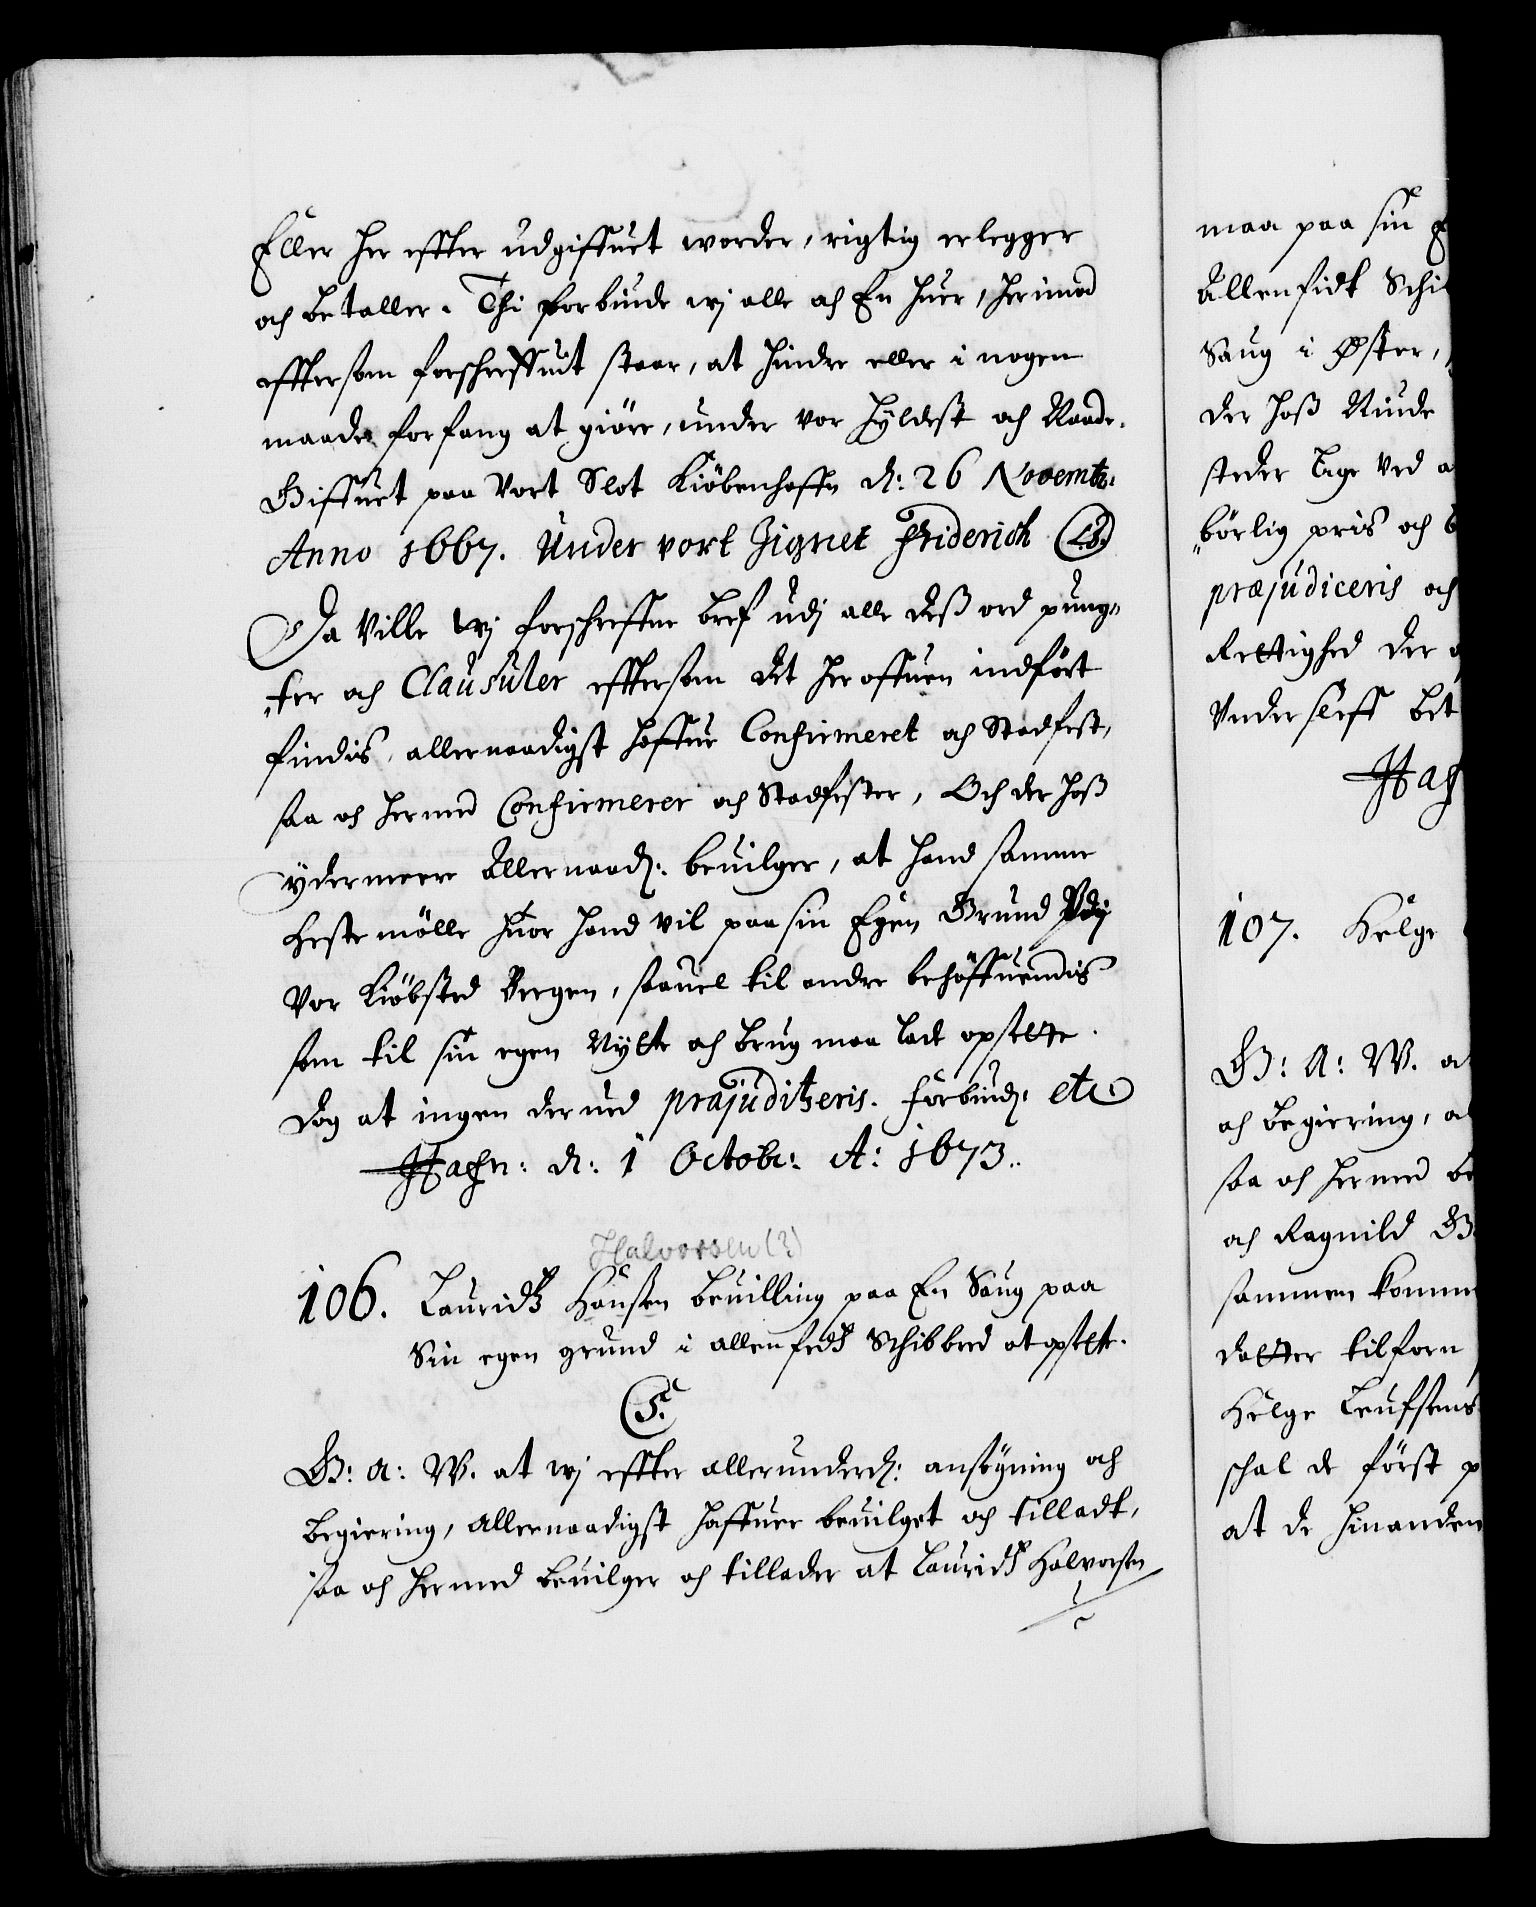 Eller her effter udgiffuet worder, rigtig erlegger
och betaller. Thi forbinde wj alle och En huer, herimod
efftersom forschreffuit staar, at hindre eller i nogen
maade forfang at giöre, under vor Hyldest och Naade.
Giffuet paa Vort Slot Kiöbenhaffn d: 26 Novemb:
Anno 1667. Under vort Zignet Friderich (L.S.)
Da Ville Wj forschreffne bref udj alle deß ord pung-
„ter och Clausuler efftersom det her offuen indfört
findis, allernaadigst haffue Confirmeret och Stadfest,
saa och hermed Confirmerer och Stadfester, Och der hoß
ÿdermeere Allernaad: beuilger, at hand samme
Hestemölle huor hand vil paa sin Egen Grund Vdj
Vor Kiöbsted Bergen, saauel til andre behöffuendis
som til sin egen Nytte och brug maa lade opsette.
dog at ingen dermed præjuditzeris. Forbind: etc
Hafn: d: 1 Octobr: A: 1673.
Halvorsen (?)
106. Lauridtz Hanßen beuilling paa En Saug paa
Sin egen grund i allenfeds Schibbred at opsette.
C 5.
G: A: W. at wj effter allerunderd: ansögning och
begiering, Allernaadigst haffuer beuilget och tilladt,
saa och hermed beuilger och tillader at Lauridtz Halvorsen
maa paa sin E
Allenfidt Schi
Saug i Øster,
der hoß Runde
steder lage ved a
„börlig pris och b
præjudiceris och
Rettighed der
Vnderslefs bet
Haf
107. Helge
G: A: W. at
och begiering, al
saa och hermed be
och Ragnild G
sammen komm
datter tilforn
Helge Leufsens
schal de först p
at de hinanden